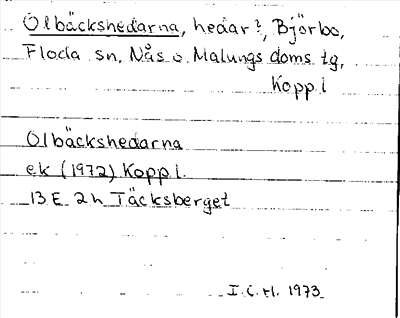 Olbäckshedarna, hedar?, Björbo,
Floda sn, Nås o. Malungs doms. tg,
Kopp. l
Olbäckshedarna
ek (1972) Kopp l.
13 E 2h Täcksberget
I.C.H. 1973